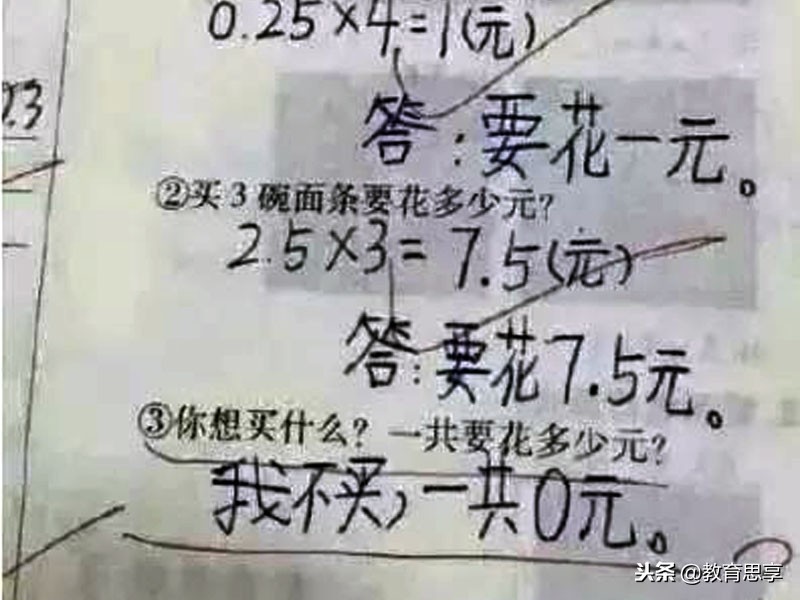 0.25×4=1(元)
答:要花一元。
23
②买3碗面条要花多少元?
2.5×3=7.5(元)
答:要花7.5元。
③你想买什么?一共要花多少元?
我不买,一共0元。
头条 @教育思享